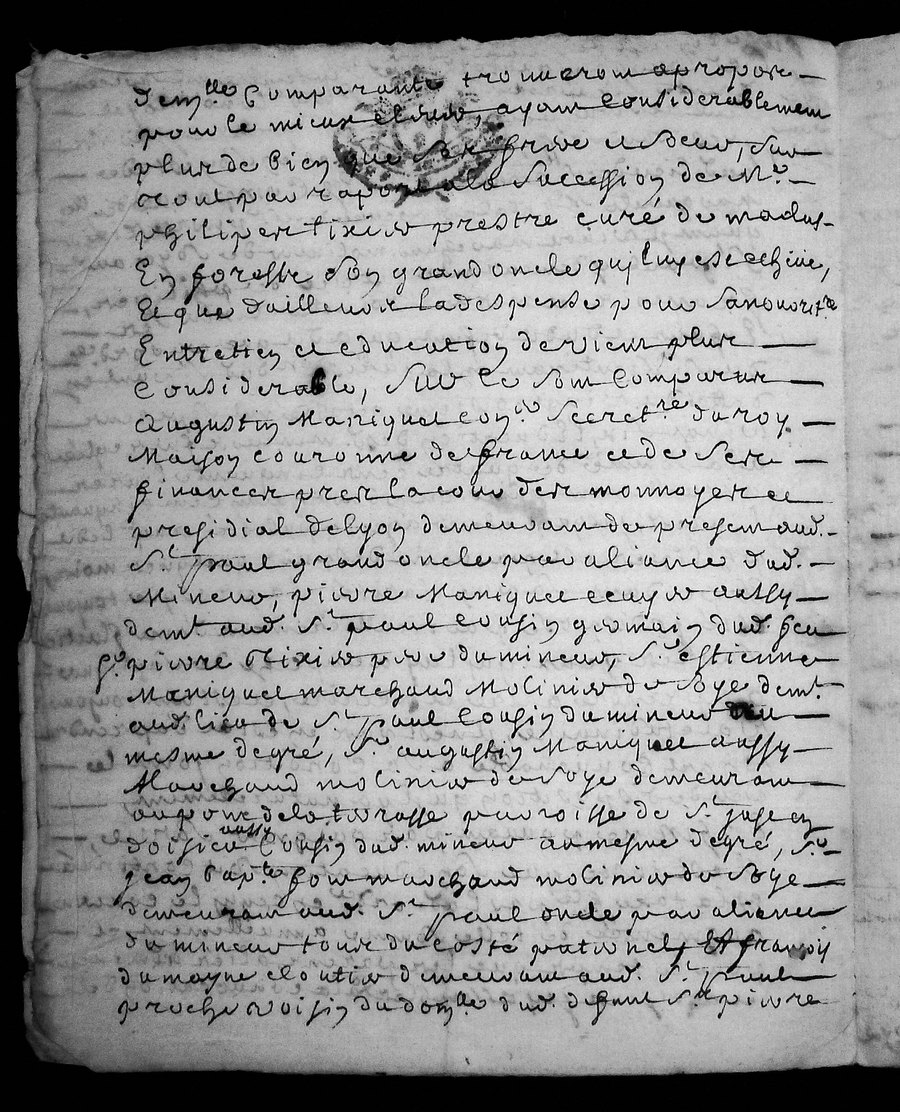 dem.lle Comparante trouveront apropos
pour le mieux elever, ayant Considerablement
plus de bien que ses frere et soeur, sur
tout par raport a la succession de Mr.
philipert tixier prestre curé de madus
En foresse son grand oncle quj luy est echüe,
Et que dailleurs la despense pour sa nourit.re
Entretien et education devient plus
Considerable, sur ce sont Comparus
Augustin Maniquet con.er Secret.re du roy
Maison couronne de france et de ses
finances pres la cour des monnoyes et
presidial de lyon demeurant de present aud.
St. paul grand oncle par aliance dud.
Mineur, pierre Maniquet ecuyer aussy
demt. aud. St. paul Cousin germain dud. feu
Sr. pierre tixier pere du mineur, Sr. estienne
Maniquet marchand Molinier de Soye demt.
aud. lieu de St. paul Cousin du mineur au
mesme degré, Sr. augustin Maniquet aussy
Marchand molinier de Soye demeurant
au pont de la terrasse parroisse de St. just en
doisieu aussy Cousin dud. mineur au mesme degré, Sr.
jean bap.te marchand molinier de Soye
demeurant aud. St. paul oncle par aliance
du mineur tous du costé paternel, Et françois
dumayne cloutier demeurant aud. St. paul
proche voisin du dom.lle dud. defunt Sr. pierre